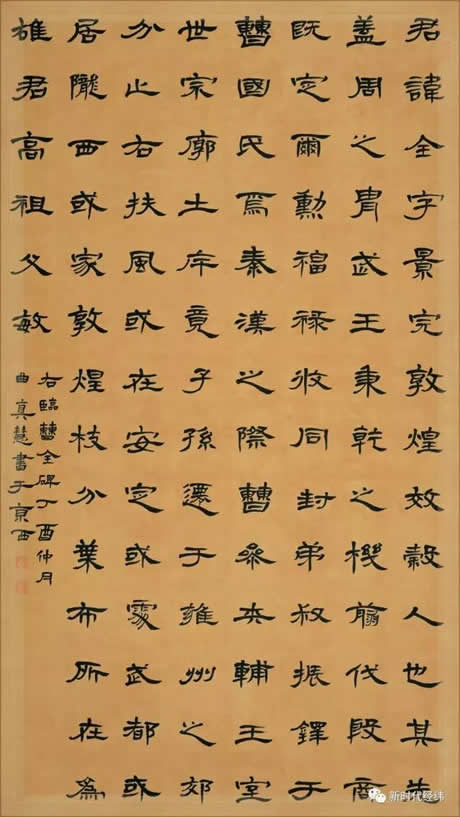 君諱全字景完敦煌效穀人也其先
蓋周之胄武王秉乾之機翦伐殷商
既定爾勳福祿攸同封弟叔振鐸于
曹國氏焉秦漢之際曹參夾輔王室
世宗廓土斥竟子孫遷于雍州之郊
分止右扶風或在安定或處武都或
居隴西或家敦煌枝分葉布所在為
雄君高祖父敏
右臨曹全碑丁酉仲月
曲真慧書于京西
新时代经纬